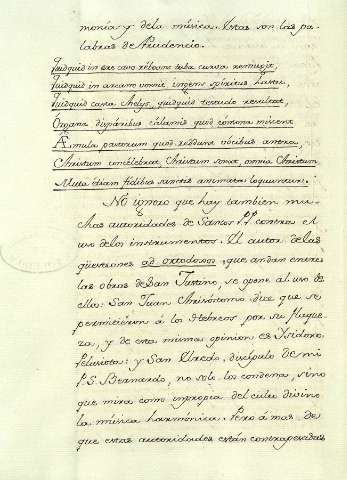 monía y de la música. Estas son las pa-
labras de Prudencio.
Quidquid in ære cavo reboans tuba curva remugit,
Quidquid in arcano vomit ingens spiritus haustu,
Quidquid casta Chelys, quidquid testudo resultat,
Organa disparibus calamis quod consona miscent
Æmula pastorum quod reddunt vocibus antra,
Christum concelebrat Christum sonat, omnia Christum
Muta etiam fidibus sanctis animata loquuntur.
No ignoro que hay tambien mu-
chas autoridades de Santos P.P. contra el
uso de los instrumentos. El autor de las
questiones ad ortodoxos, que andan entre
las obras de San Justino, se opone al uso de
ellos: San Juan Chrisóstomo dice que se
permitieron á los Hebreos por su flaque-
za, y de esta misma opinion es Isidoro
Pelusiota: y San Elredo, discípulo de mi
P. S. Bernardo, no solo los condena, sino
que mira como impropia del culto divino
la música harmónica. Pero á mas de
que estas autoridades están contrapesadas